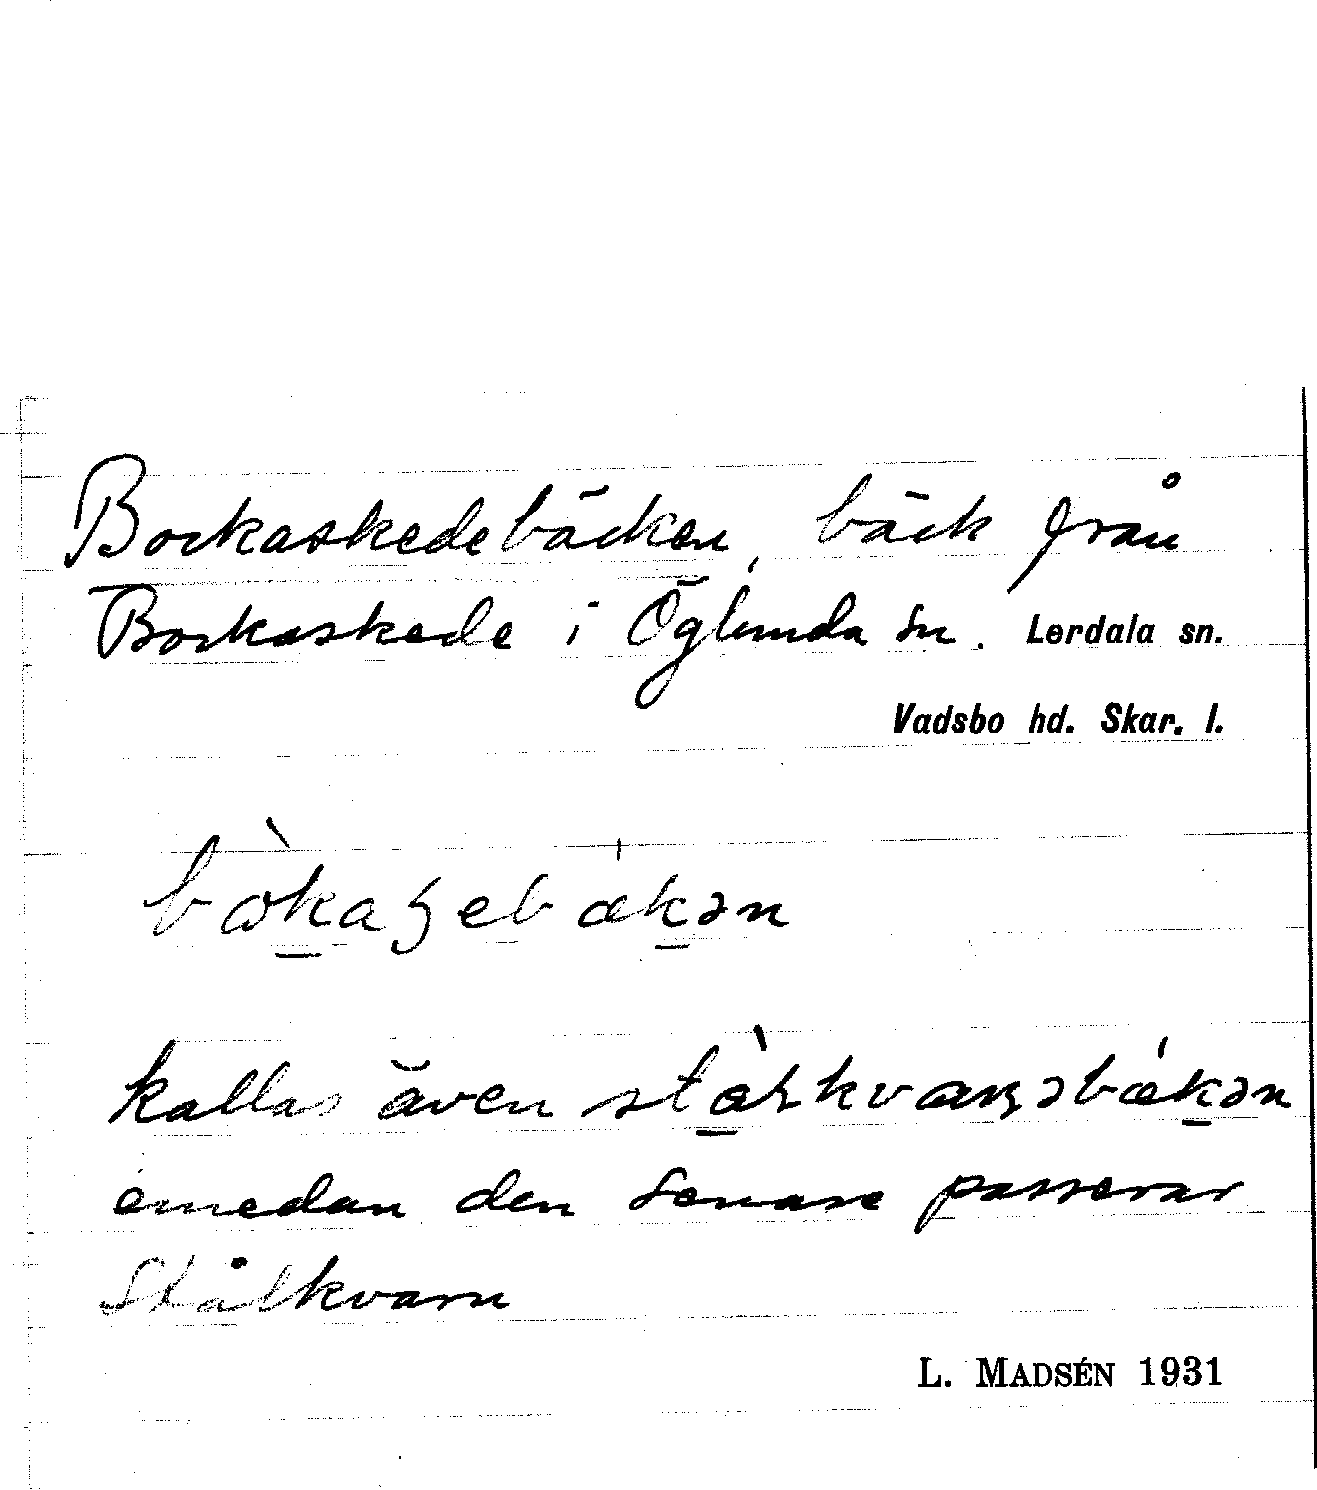 Bockaskedebäcken, bäck från
Bockaskede i Öglunda sn. Lerdala sn.
Vadsbo hd. Skar. l.
kallas även
emedan den senare passerar
Stålkvarn
L. MADSÉN 1931